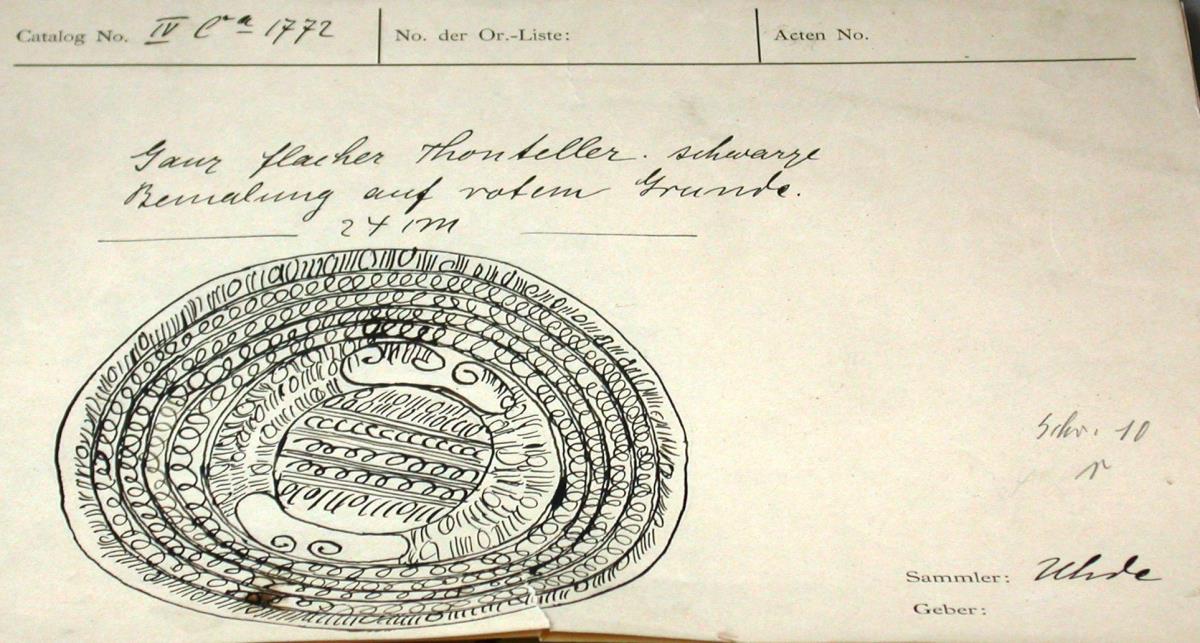 Catalog No. IV Ca 1772 No. der Or.-Liste: Acten No.
Ganz flacher Thonteller. schwarze
Bemalung auf rotem Grunde.
24 cm
Schr. 10
Sammler: Uhde
Geber: